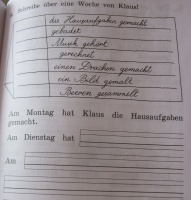 Schreibe über eine Woche von Klaus!
die Hausaufgaben gemacht
gebadet
Musik gehört
gerechnet
einen Drachen gemacht
ein Bild gemalt
Beeren gesammelt
Am Montag hat Klaus die Hausaufgaben
gemacht.
Am Dienstag hat
Am